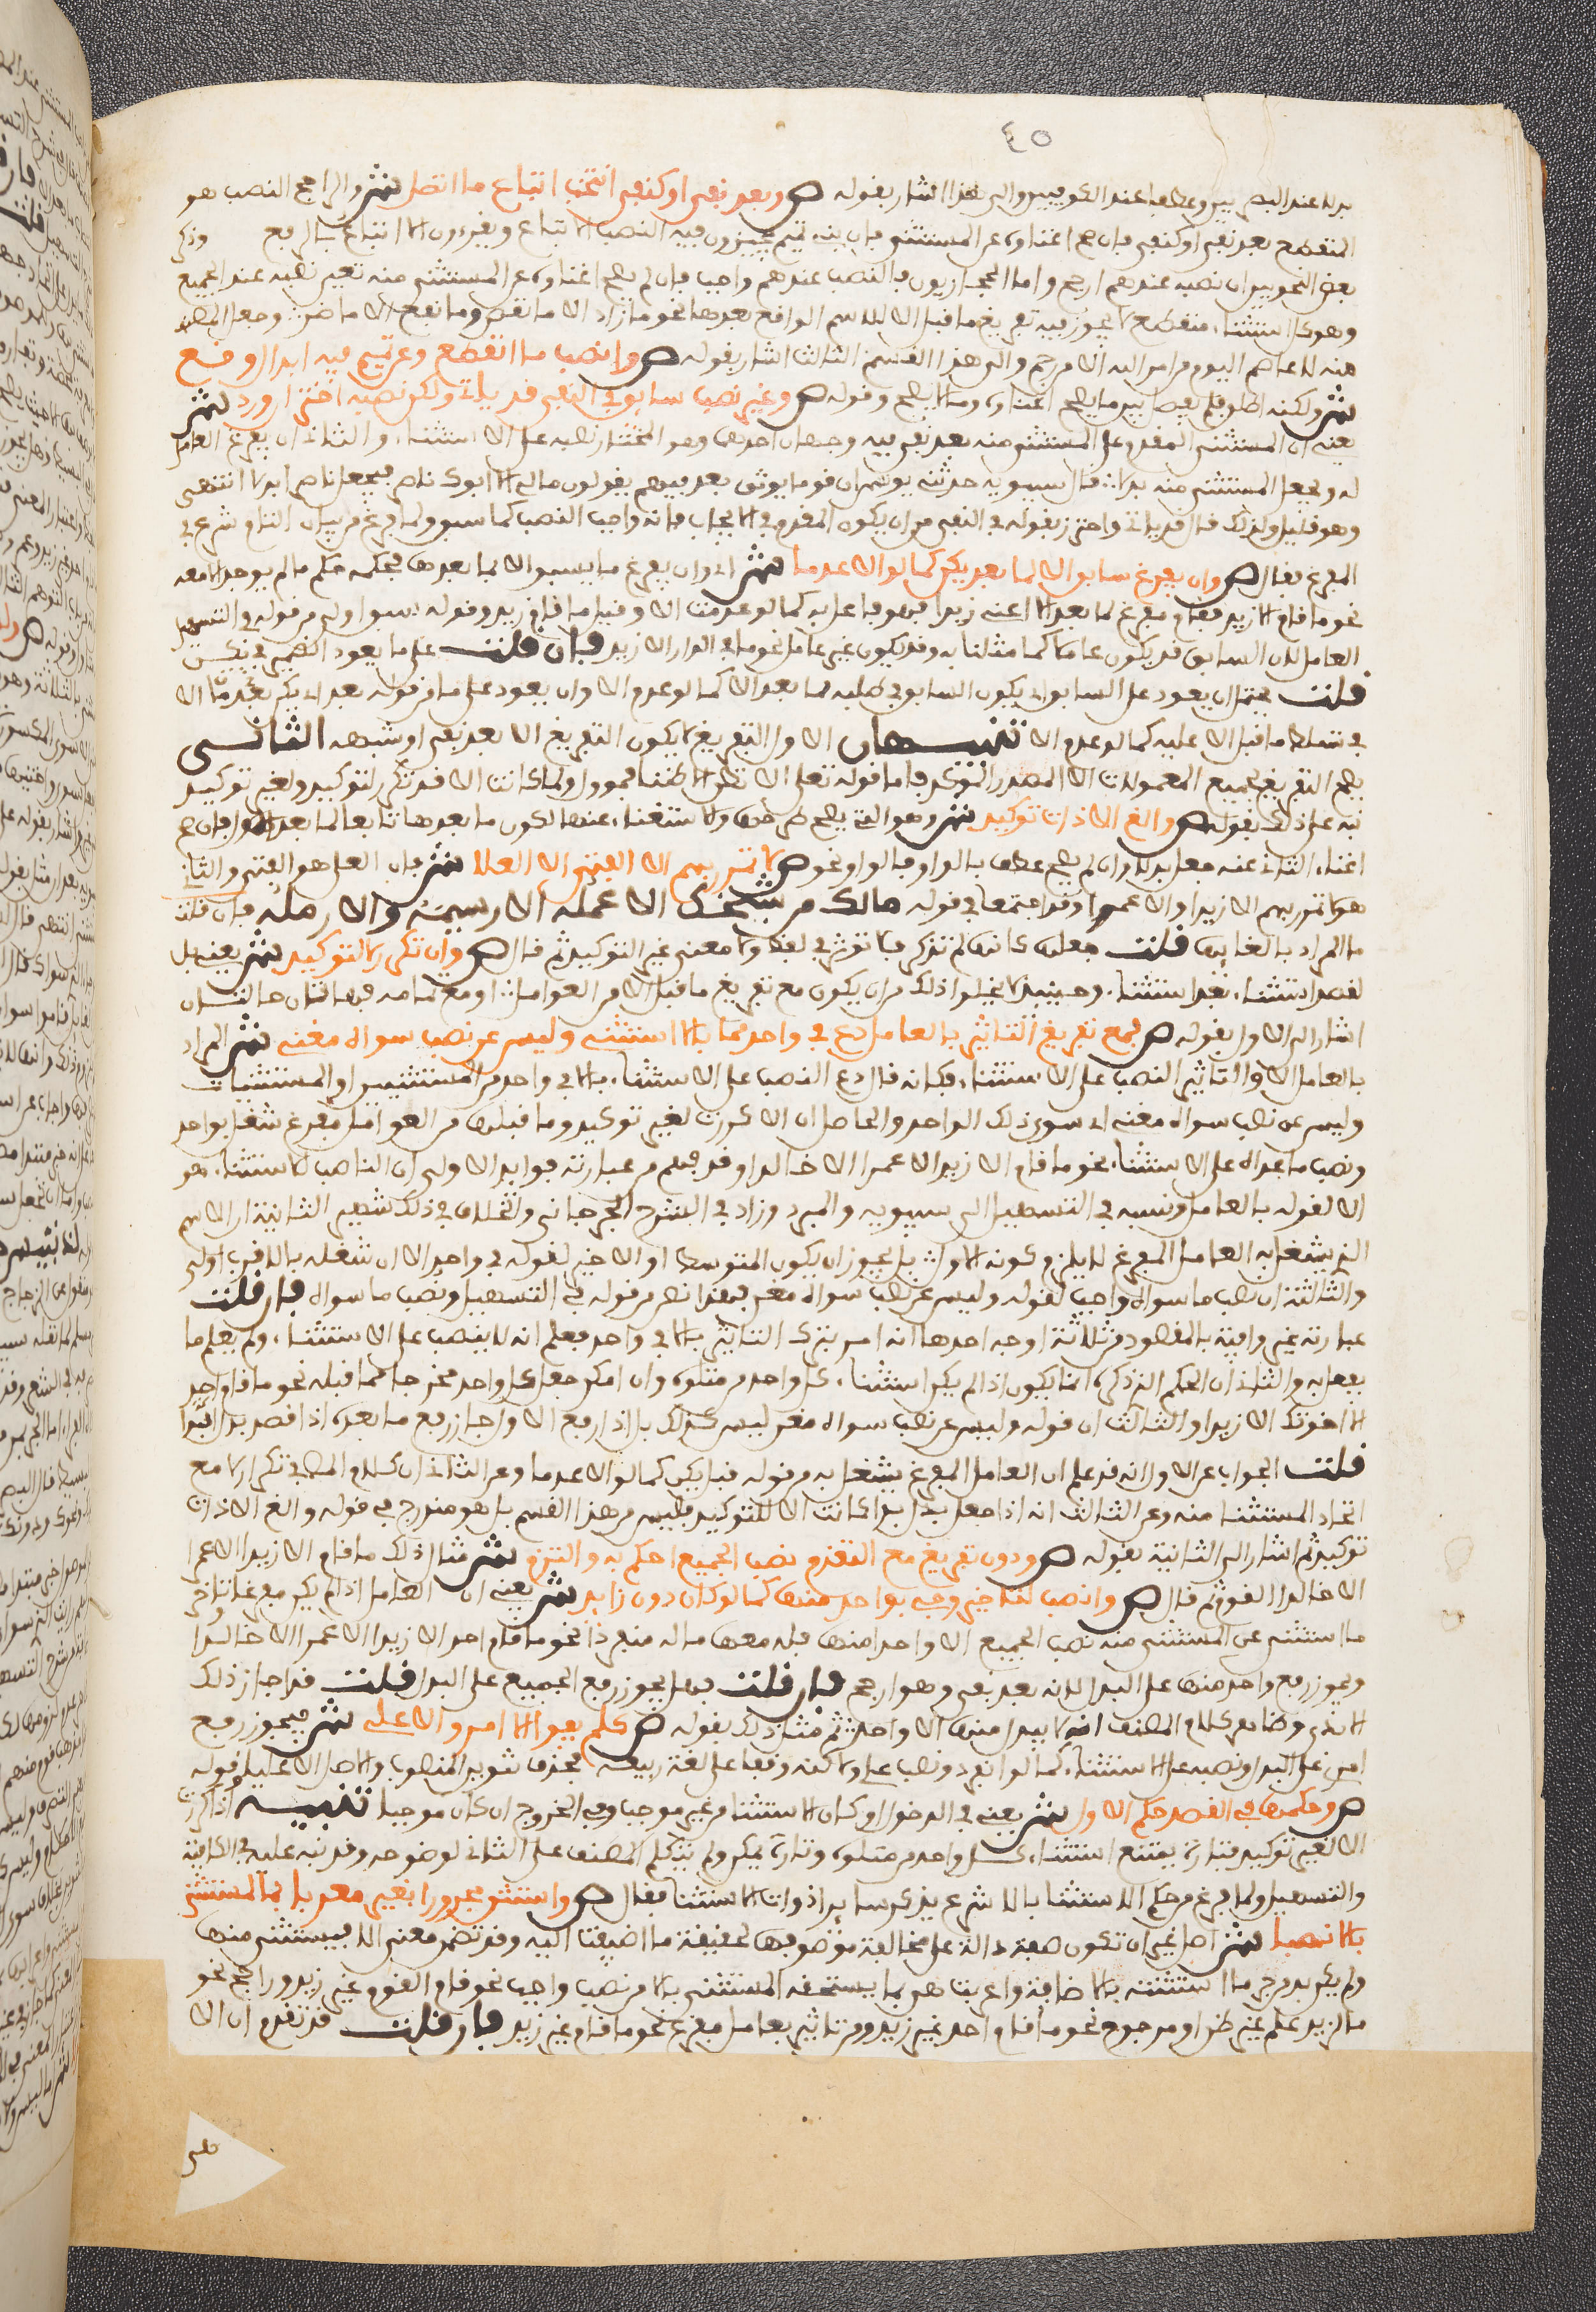 ٤٥
بدلا عند البصريين وعطفا عند الكوفيين والى هذا اشار بقوله ص وبعد نفي او كنفي انتخب اتباع ما اتصل ش والراجح النصب هو
المنقطع بعد نفي او كنفي فان صح اغناوه عن المستثنى فان بني تميم يجيزون فيه النصب والاتباع ويقرءون الا اتباع بالرفع وذكر
بعض النحويين ان نصبه عندهم ارجح واما الحجازيون فالنصب عندهم واجب فان لم يصح اغناوه عن المستثنى منه تعين نصبه عند الجميع
وهو كل استثناء منقطع لا يجوز فيه تفريغ ما قبل الا للاسم الواقع بعدها نحو ما زاد الا ما نقص وما نفع الا ما ضر وجعل المصنف
منه لا عاصم اليوم من امر الله الا من رحم والى هذا القسم الثالث اشار بقوله ص وانصب ما انقطع وعن تميم فيه ابدال وقع
ش ولكنه اطلق فلم يفصل بين ما يصح اغناوه وما لا يصح وقوله ص وغير نصب سابق في النفي قد ياتي ولكن نصبه اختر ان ورد ش
يعني ان المستثنى المقدم على المستثنى منه بعد نفي فيه وجهان احدهما وهو المختار نصبه على الاستثناء والثاني ان يفرغ العامل
له ويجعل المستثنى منه بدلا قال سيبويه حدثني يونس ان قوما يوثق بعربيتهم يقولون مالي الا ابوك ناصر فيجعل ناصر بدلا انتهى
وهو قليل ولذلك قال قد ياتي واحترز بقوله في النفي من ان يكون المقدم في الايجاب فانه واجب النصب كما سبق ولما فرغ من بيان التام شرع في
المفرغ فقال ص وان يفرغ سابق الا لما بعد يكن كما لو الا عدما ش اي وان يفرغ ما يسبق الا لما بعدها فحكمه حكم ما لم يوجد الا معه
نحو ما قام الا زيد فقام مفرغ لما بعد الا اعني زيدا فهو فاعل به كما لو عدمت الا وقيل ما قام زيد وقوله سابق اولى من قوله في التسهيل
العامل لان السابق قد يكون عاملا كما مثلنا به وقد يكون غير عامل نحو ما في الدار الا زيد فان قلت على ما يعود الضمير في يكن
قلت يحتمل ان يعود على السابق اي يكون السابق في طلبه لما بعد الا كما لو عدم الا وان يعود على ما من قوله بعد اي يكن بعد ما الا
في تسلط ما قبل الا عليه كما لو عدم الا تنبيهان الاول التفريغ لا يكون التفريغ الا بعد نفي او شبهه الثاني
يصح التفريغ لجميع المعمولات الا المصدر المؤكد فاما قوله تعلى ان نظن الا ظنا فمؤول ولما كانت الا قد تكرر لتوكيد ولغير توكيد
نبه على ذلك بقوله ص والغ الا ذات توكيد ش وهو التي يصح طرحها والاستغناء عنها لكون ما بعدها تابعا لما بعد الاولى فان صح
اغناء الثاني عنه جعل بدلا وان لم يصح عطف بالواو فالواو نحو ص لا تمرر بهم الا الفتى الا العلا ش فان العلا هو الفتى والثاني
هو ما تمرر بهم الا زيدا والا عمرا وقد اجتمعا في قوله مالك من شيخك الا عمله الا رسيمه والا رمله فان قلت
ما المراد بالغائها قلت جعلها كانها لم تذكر فلا توثر في لفظ ولا معنى غير التوكيد ثم قال ص وان تكرر لا لتوكيد ش يعني بل
لقصد استثناء بعد استثناء وحينئذ لا يخلوا ذلك من ان يكون مع تفريغ ما قبل الا من العوامل او مع تمامه فهاتان حالتان
اشار الى الاولى بقوله ص فمع تفريغ التاثير بالعامل دع في واحد مما بالا استثني وليس عن نصب سواه مغني ش المراد
بالعامل الا والتاثير النصب على الاستثناء فكانه قال دع النصب على الاستثناء بالا في واحد من المستثنيين او المستثنيات
وليس عن نصب سواه مغني اي سوى ذلك الواحد والحاصل ان الا كررت لغير توكيد وما قبلها من العوامل مفرغ شغل بواحد
ونصب ما عداه على الاستثناء نحو ما قام الا زيد الا عمرا الا خالدا وقد فهم من عبارته فوايد الاولى ان الناصب للاستثناء هو
الا لقوله بالعامل ونسبه في التسهيل الى سيبويه والمبرد وزاد في الشرح الجرجاني والخلاف في ذلك شهير الثانية ان الاسم
الذي يشغل به العامل المفرغ لا يلزم كونه الاول بل يجوز ان يكون المتوسط او الاخير لقوله في واحد الا ان شغله بالاقرب اولى
والثالثة ان نصب ما سواه واجب لقوله وليس عن نصب سواه مغني فهذا نص من قوله في التسهيل ونصب ما سواه فان قلت
عبارته غير وافية بالمقصود من ثلاثة اوجه احدها انه امر بترك التاثير بالا في واحد فعلم انه لا ينصب على الاستثناء ولم يعلم ما
يفعل به والثاني ان الحكم الذي ذكره انما يكون اذا لم يكن استثناء كل واحد من متلوه وان امكن جعل كل واحد مخرجا مما قبله نحو ما قام واحد
الا اخوتك الا زيدا والثالث ان قوله وليس عن نصب سواه مغني ليس كذلك بل اذا رفع الاول جاز رفع ما بعده اذا قصد بدل البدا
قلت الجواب عن الاول انه قد علم ان العامل المفرغ يشغل به من قوله قبل يكن كما لو الا عدما وعن الثاني ان كلام المصنف في تكرارها مع
اتحاد المستثنا منه وعن الثالث انه اذا جعل بدل بدا كانت الا للتوكيد فليس من هذا القسم بل هو مندرج في قوله والغ الا ذات
توكيد ثم اشار الى الثانية بقوله ص ودون تفريغ مع التقدم نصب الجميع احكم به والتزم ش مثال ذلك ما قام الا زيدا الا عمرا
الا خالدا القوم ثم قال ص وانصب لتاخير وجئ بواحد منها كما لو كان دون زايد ش يعني ان العامل اذا لم يكن مفرغا وتاخر
ما استثني عن المستثنى منه نصب الجميع الا واحدا منها فله معها ما له منفردا نحو ما قام احد الا زيدا الا عمرا الا خالدا
ويجوز رفع واحد منها على البدل لانه بعد نفي وهو ارجح فان قلت فهل يجوز رفع الجميع على البدل قلت قد اجاز ذلك
الابذي وظاهر كلام المصنف انه لا يبدل منها الا واحد ثم مثل ذلك بقوله ص كلم يفوا الا امرو الا علي ش فيجوز رفع
امرئ على البدل ونصبه على الاستثناء كما لو انفرد ونصب علي ولاكنه وقف على لغة ربيعة بحذف تنوين المنصوب والاصل الا عليا وقوله
ص وحكمها في القصد حكم الاول ش يعني في الدخول ان كان الاستثنا من غير موجب وفي الخروج ان كان موجبا تنبيه اذا كررت
الا لغير توكيد فتارة يمتنع استثناء كل واحد من متلوه وتارة يمكن ولم يتكلم المصنف على الثاني لوضوحه وقد نبه عليه في الكافية
والتسهيل ولما فرغ من حكم الاستثنا بالا شرع يذكر ساير ادوات الاستثنا فقال ص واستثن مجرورا بغير معربا بما لمستثنى
بالا نصبا ش اصل غير ان تكون صفة دالة على مخالفة موصوفها لحقيقة ما اضيفت اليه وقد تضمن معنى الا فيستثنى منها
ولم يكن بد من جر ما استثنته بالاضافة واعربت هي بما يستحقه المستثنى بالا من نصب واجب نحو قام القوم غير زيد وراجح نحو
ما لزيد علم غير ظن او مرجوح نحو ما قام احد غير زيد ومن تاثير بعامل مفرغ نحو ما قام غير زيد فان قلت قد تقدم ان الا